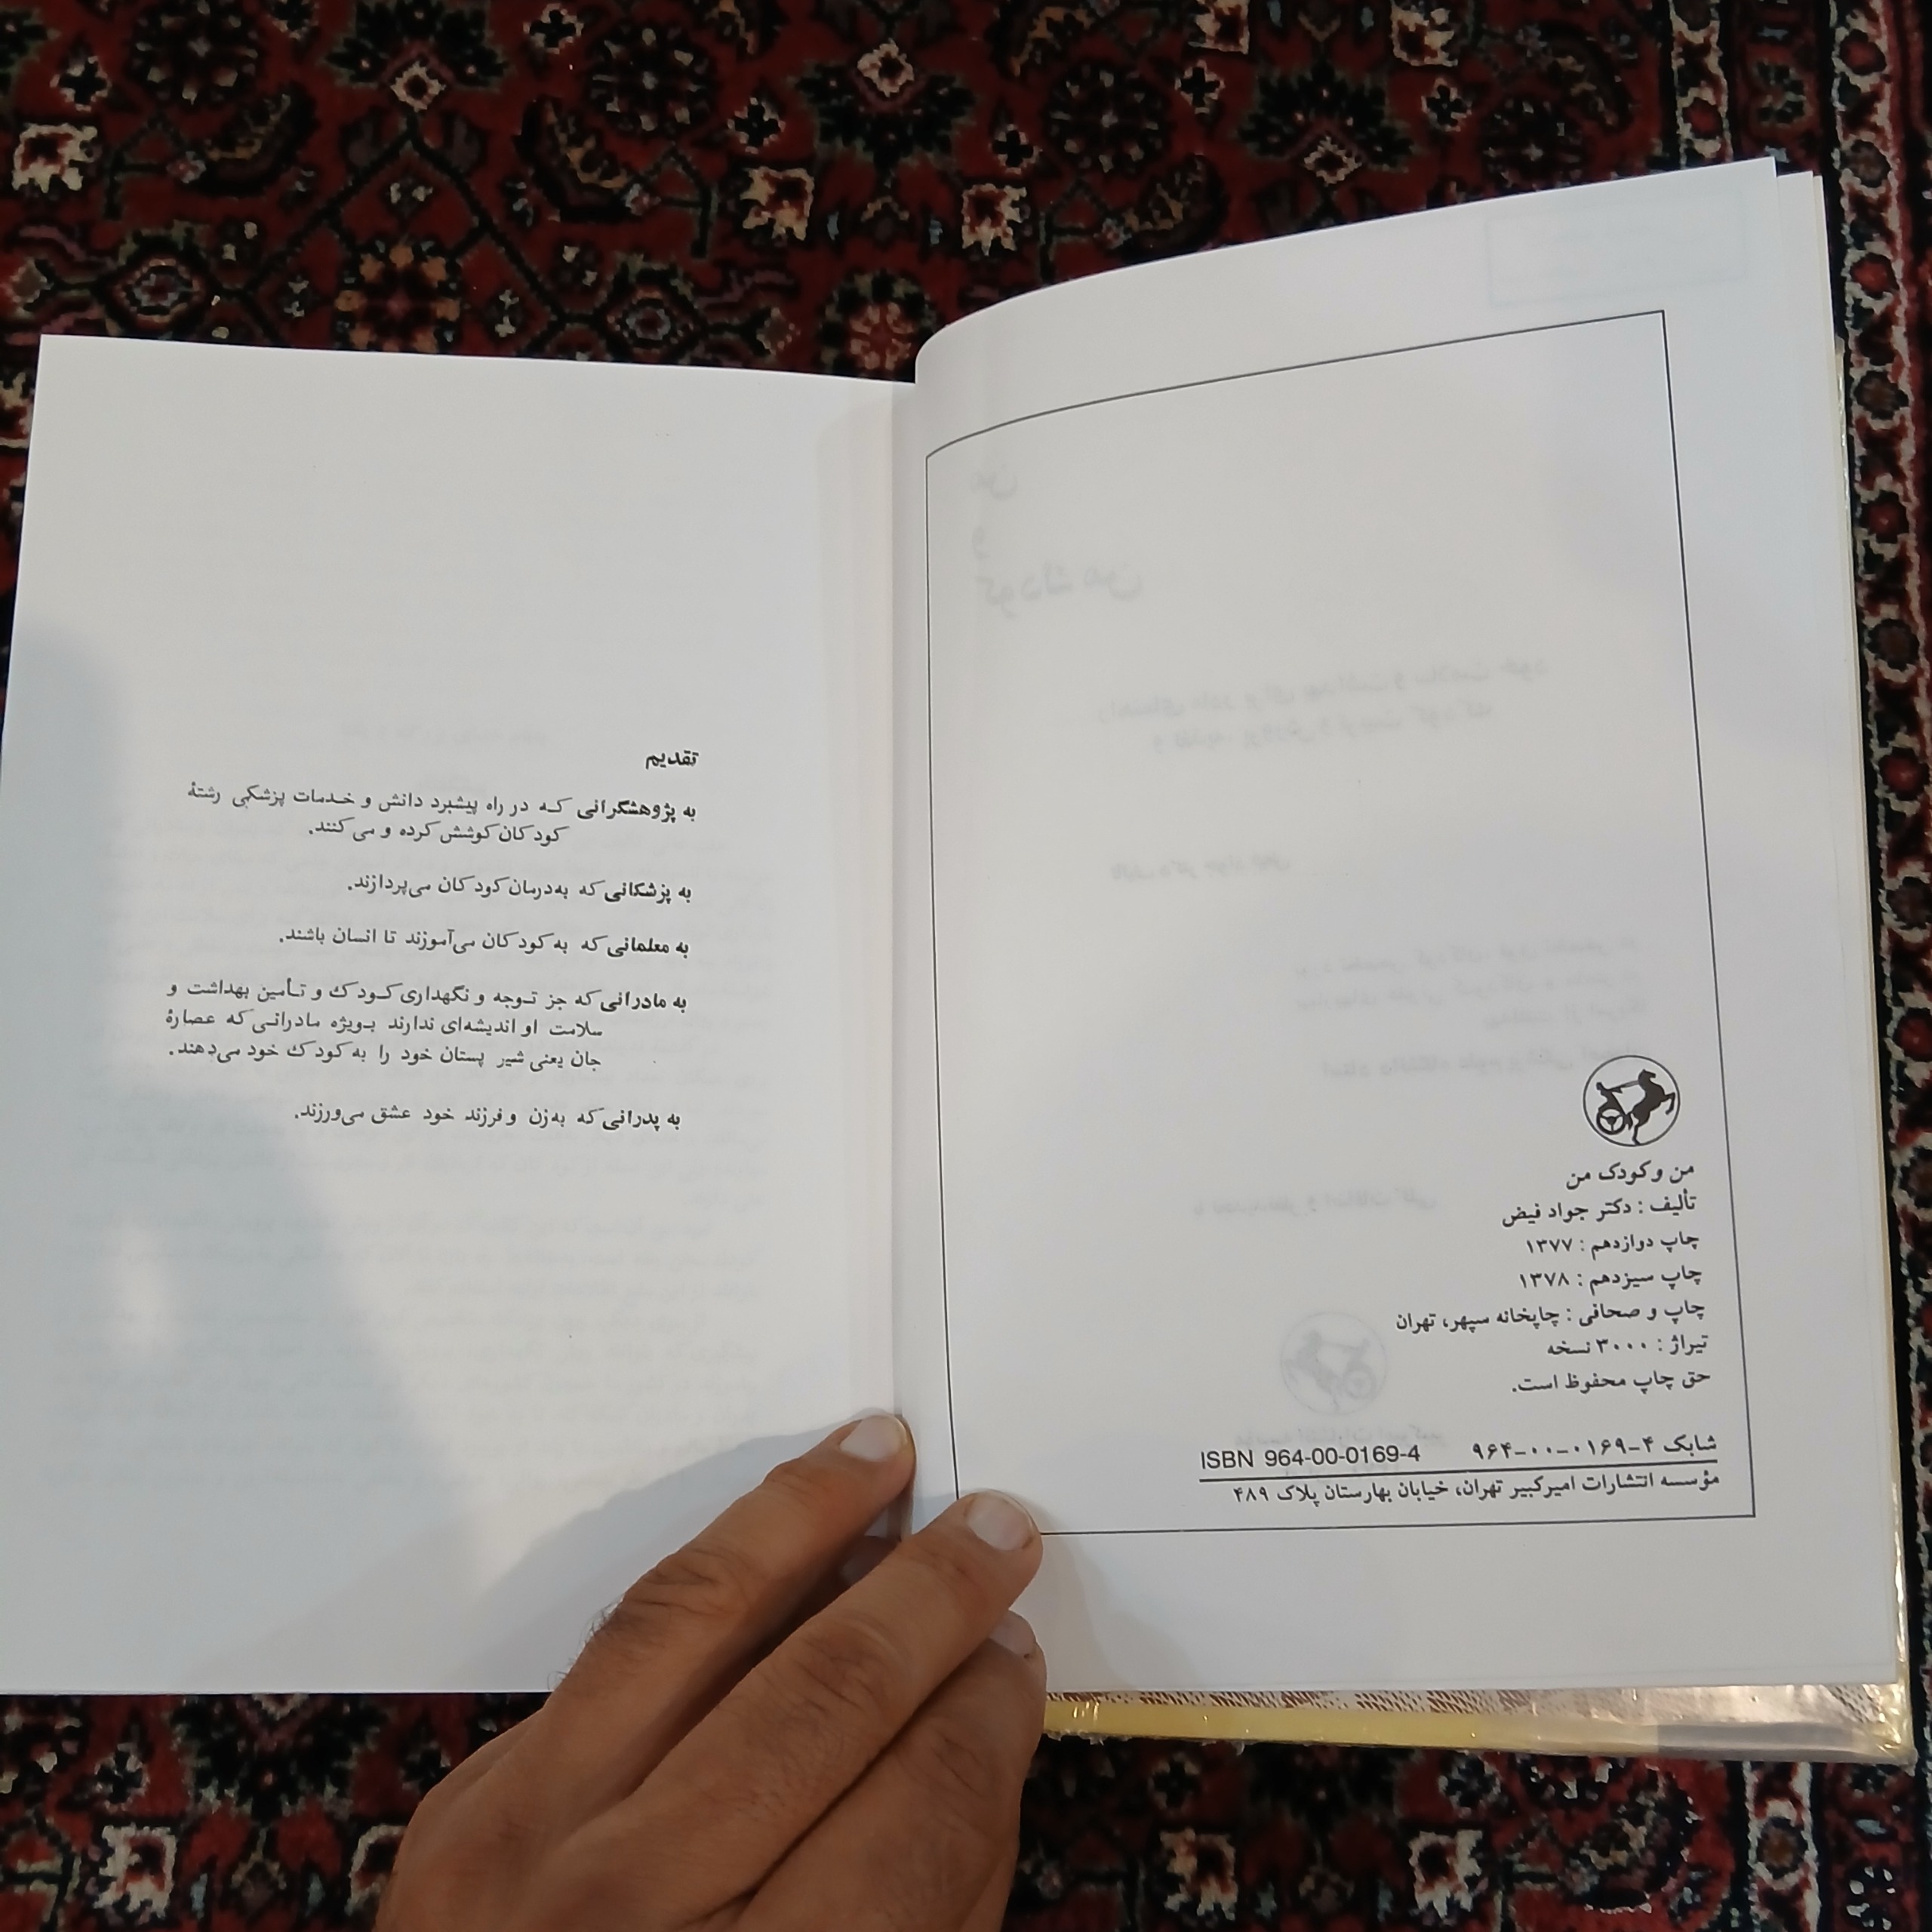 من و کودک من
تألیف : دکتر جواد فیض
چاپ دوازدهم : ۱۳۷۷
چاپ سیزدهم : ۱۳۷۸
چاپ و صحافی : چاپخانه سپهر، تهران
تیراژ : ۳۰۰۰ نسخه
حق چاپ محفوظ است.
شابک ۴-۰۱۶۹-۰۰-۹۶۴ ISBN 964-00-0169-4
مؤسسه انتشارات امیرکبیر تهران، خیابان بهارستان پلاک ۴۸۹
تقدیم
به پژوهشگرانی که در راه پیشبرد دانش و خدمات پزشکی رشتهٔ
کودکان کوشش کرده و می‌کنند.
به پزشکانی که به‌درمان کودکان می‌پردازند.
به معلمانی که به‌کودکان می‌آموزند تا انسان باشند.
به مادرانی که جز توجه و نگهداری کودک و تأمین بهداشت و
سلامت او اندیشه‌ای ندارند بویژه مادرانی که عصارهٔ
جان یعنی شیر پستان خود را به کودک خود می‌دهند.
به پدرانی که به‌زن و فرزند خود عشق می‌ورزند.